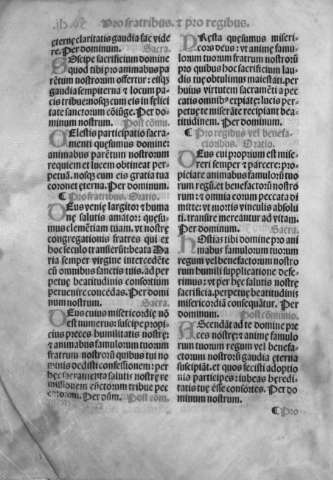 Pro fratribus. et pro regibus.
eterne claritatis gaudia fac vide
re. Per dominum. Sacra.
Suscipe sacrificium domine
quod tibi pro animabus pa
rẽtum nostrorum offerrimus: eisqz
gaudia sempiterna et locum pa
cis tribue: nosqz cum eis in felici
tate sanctorum cõiũge. Per do
minum nostrum. Post comu.
Celestis participatio sacra
menti quesumus domine
animabus parẽtum nostrorum
requiem et lucem obtineat perpe
tuã. nosqz cum eis gratia tua
coronet eterna. Per dominum.
¶ Pro fratribus. Oratio.
Deus venie largitor et huma
ne salutis amator: quesu
mus clementiam tuam. vt nostre
congregationis fratres qui ex
hoc seculo transierũt: beata Ma
ria semper virgine intercedẽte
cũ omnibus sanctis tuis. ad per
petue beatitudinis consortium
peruenire concedas. Per domi
num nostrum. Sacra.
Deus cuius misericordie nõ
est numerus: suscipe propici
us preces humilitatis nostre:
et animabus famulorum tuorum
fratrum nostrorũ quibus tui no
minis dedisti confessionem: per
hec sacramenta salutis nostre re
missionem cũctorum tribue pec
catorum. Per dñm. Post com.
Presta quesumus miseri
cors deus: vt anime famu
lorum tuorum fratrum nostrorũ
pro quibus hoc sacrificium lau
dis tue obtulimus maiestati. per
huius virtutem sacramẽti a pec
catis omnibus expiate: lucis per
petue te miserãte recipiant bea
titudinem. Per dominum.
¶ Pro regibus vel benefa
ctoribus. Oratio.
Deus cui proprium est mise
reri semper et parcere: pro
piciare animabus famulorũ tuo
rum regũ. et benefactorũ nostro
rum: et omnia eorum peccata di
mitte: vt mortis vinculis absolu
ti. transire mereantur ad vitam.
Per dominum. Sacra.
Hostias tibi domine pro ani
mabus famulorum tuorum
regum vel benefactorum nostro
rum humili supplicatione defe
rimus: vt per hec salutis nostre
sacrificia. perpetue beatitudinis
misericordiã consequãtur. Per
dominum. Post cõmunio.
Ascendãt ad te domine pre
ces nostre: et anime famulo
rum tuorum regum vel benefa
ctorum nostrorũ gaudia eterna
suscipiãt. et quos fecisti adoptio
nis participes: iubeas heredi
tatis tue esse consortes. Per do
minum nostrum.
¶ Pro